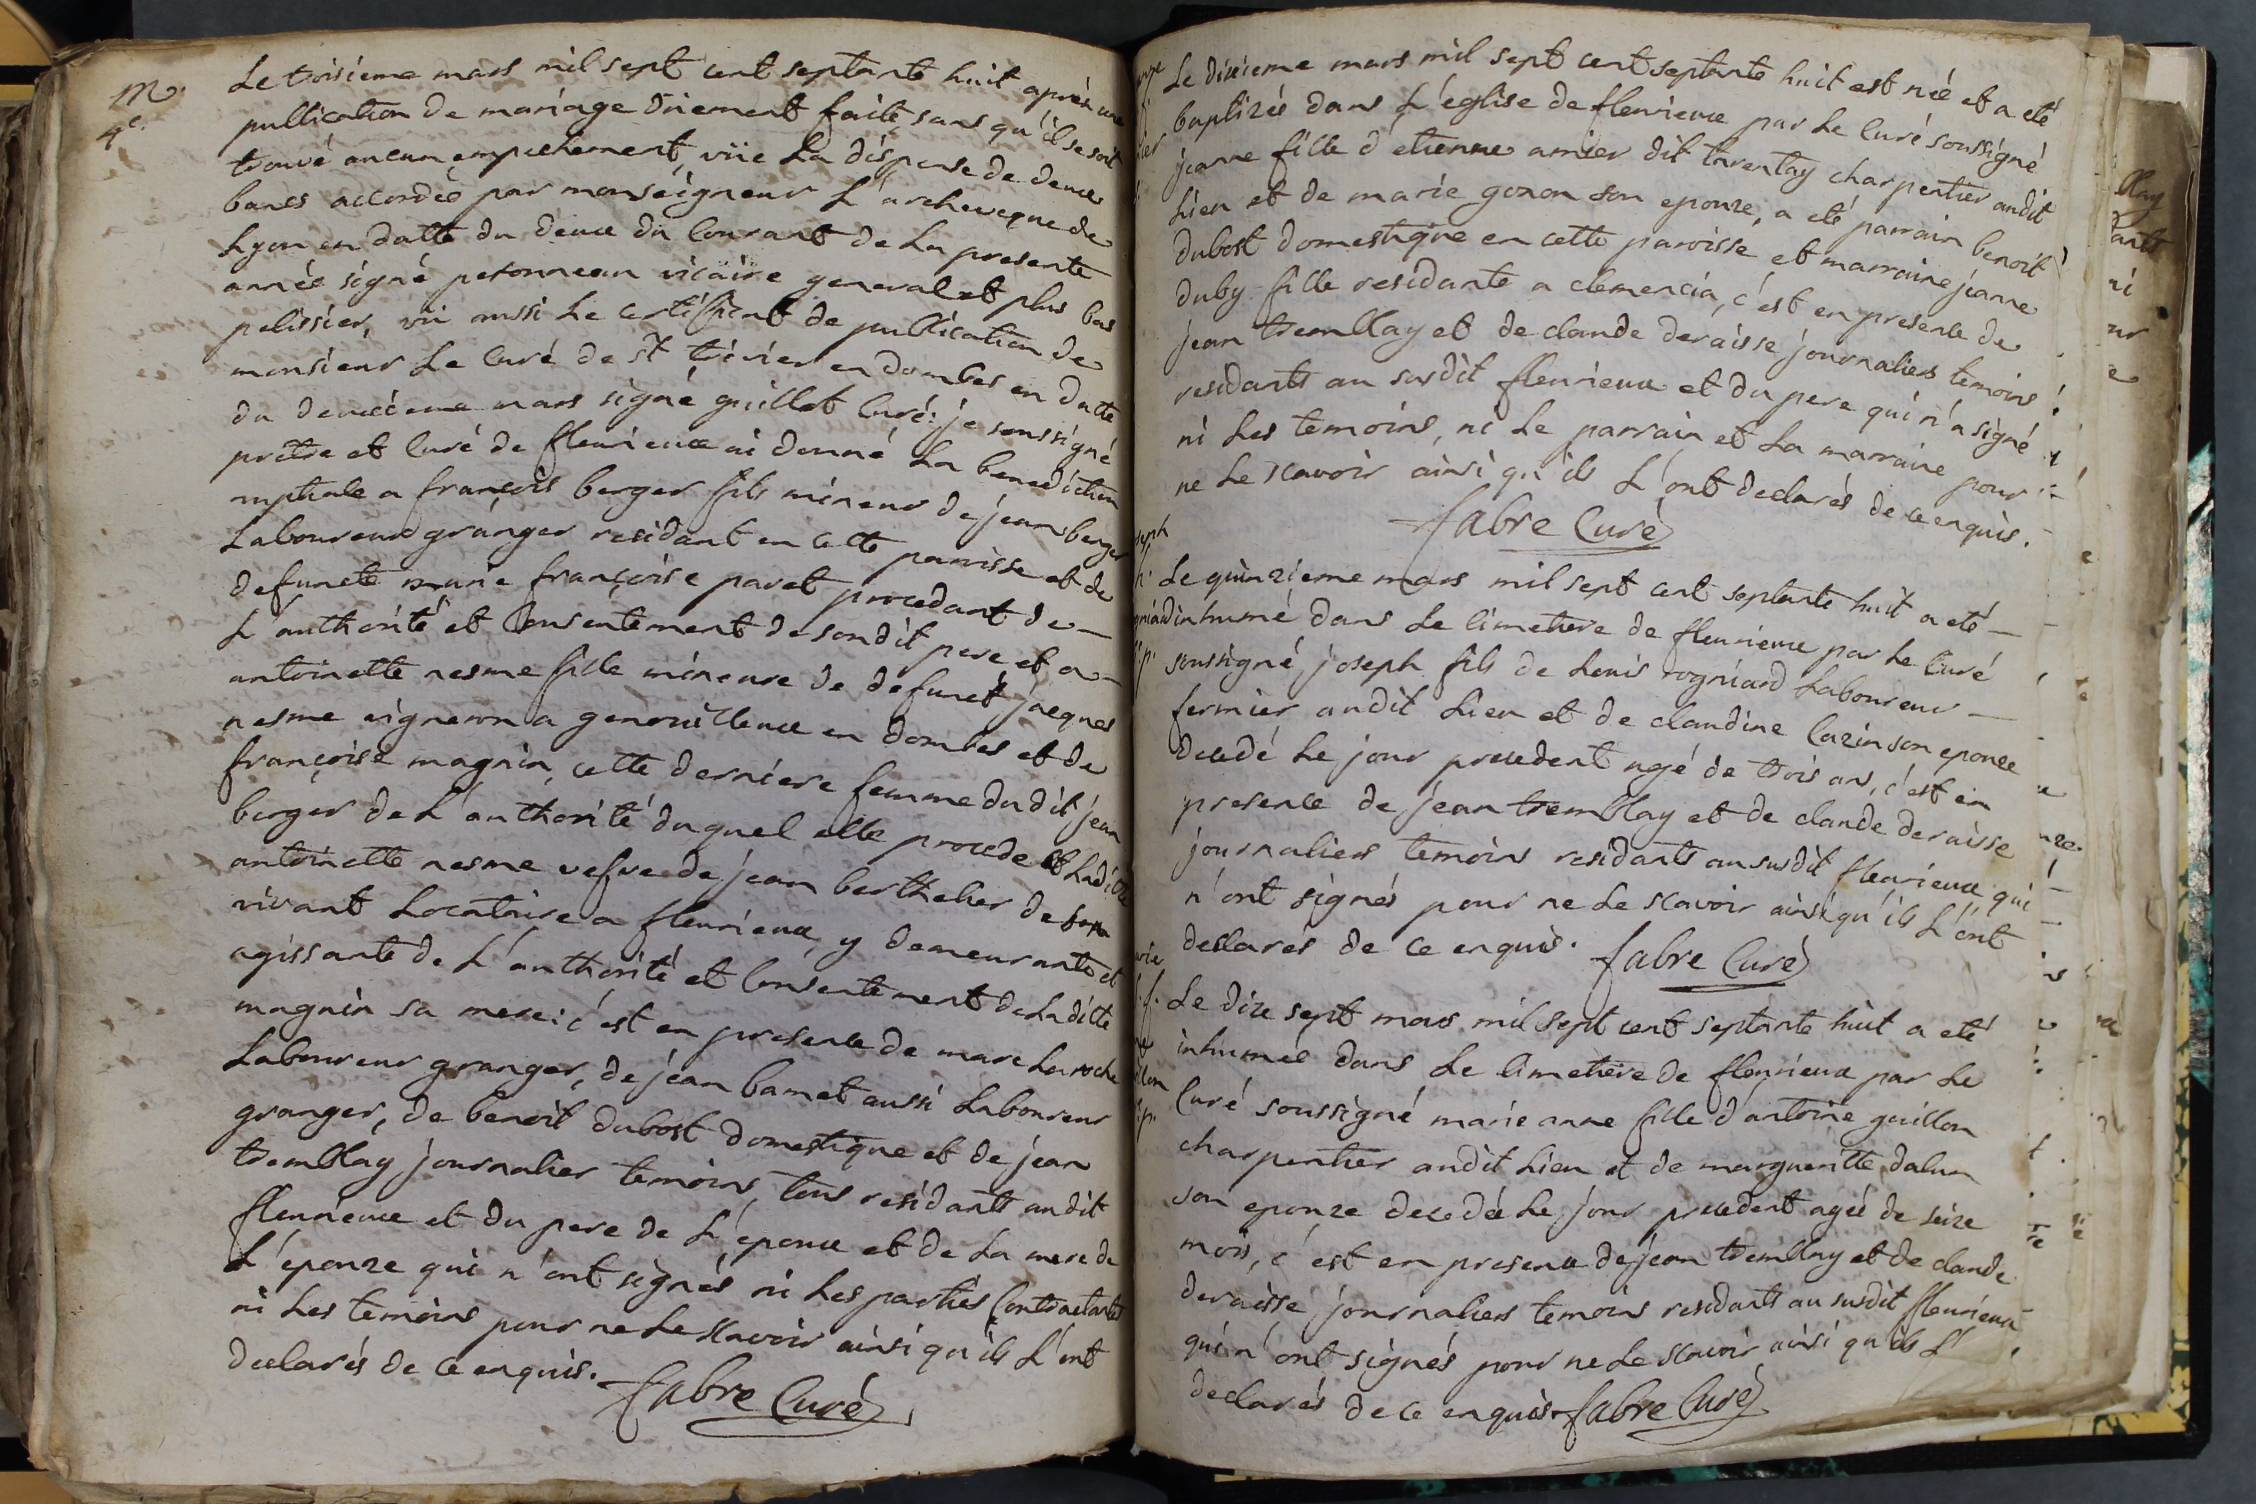 m.
4e.
Le troisieme mars mil sept cent septante huit après une
publication de mariage düement faite sans qu'il se soit
trouvé aucun empechement, vüe La dispense de deux
bancs accordée par monseigneur L'archeveque de
Lyon en datte du deux du Courant de La presente
année signé petonneau vicaire general et plus bas
pelissier, vû aussi Le certificat de publication de
monsieur Le Curé de st trivier en dombes en datte
du deuxieme mars signé guillot Curé: je soussigné
prêtre et Curé de fleurieux ai donné La benediction
nuptiale a françois berger fils mineur de jean berger
Laboureur granger residant en cette paroisse et de
defuncte marie françoise paret procedant de —
L'authorité et Consentement de sondit pere et a —
antoinette nesme fille mineure de defunct jacques
nesme vigneron a genouilleux en dombes et de
françoise magnin, cette derniere femme dudit jean
berger de L'authorité duquel elle procede et Laditte
antoinette nesme vefve de jean berthelier de son
vivant Locataire a fleurieux, y demeurante et
agissante de L'authorité et Consentement de Laditte
magnin sa mere: c'est en presence de marc Laroche
Laboureur granger, de jean bamet aussi Laboureur
granger, de benoit dubost domestique et de jean
tremblay journalier temoins, tous residants audit
fleurieux et du pere de L'epoux et de La mere de
L'epouze qui n'ont signés ni Les parties Contractantes
ni Les temoins pour ne Le sçavoir ainsi qu'ils L'ont
declarés de ce enquis.
fabre Curé
Le dixieme mars mil sept cent septante huit est née et a eté
baptizée dans L'eglise de fleurieux par Le Curé soussigné
jeanne fille d'etienne amier dit tarentay charpentier audit
Lieu et de marie gonon son epouze, a eté parrain benoit
dubost domestique en cette paroisse et marraine jeanne
duby fille residante a clemencia, c'est en presence de
jean tremblay et de claude deraisse journaliers temoins
residants au susdit fleurieux et du pere qui n'a signé
ni Les temoins, ni Le parrain et La marraine pour
ne Le scavoir ainsi qu'ils L'ont declarés de ce enquis.
fabre Curé
Le quinzieme mars mil sept cent septante huit a eté —
inhumé dans Le Cimetiere de fleurieux par Le Curé
soussigné joseph fils de Louis rogniard Laboureur —
fermier audit Lieu et de claudine Cazin son epouze
decedé Le jour precedent agé de trois ans, c'est en
presence de jean tremblay et de claude deraisse
journaliers temoins residants au susdit fleurieux qui
n'ont signés pour ne Le scavoir ainsi qu'ils L'ont
declarés de ce enquis. fabre Curé
Le dixe sept mars mil sept cent septante huit a eté
inhumée dans Le Cimetiere de fleurieux par Le
Curé soussigné marie anne fille d'antoine guillon
charpentier audit Lieu et de margueritte dalun
son epouze decedée Le jour precedent agée de seize
mois, c'est en presence de jean tremblay et de claude
deraisse journaliers temoins residants au susdit fleurieux
qui n'ont signés pour ne Le scavoir ainsi qu'ils L'
declarés de ce enquis fabre Curé